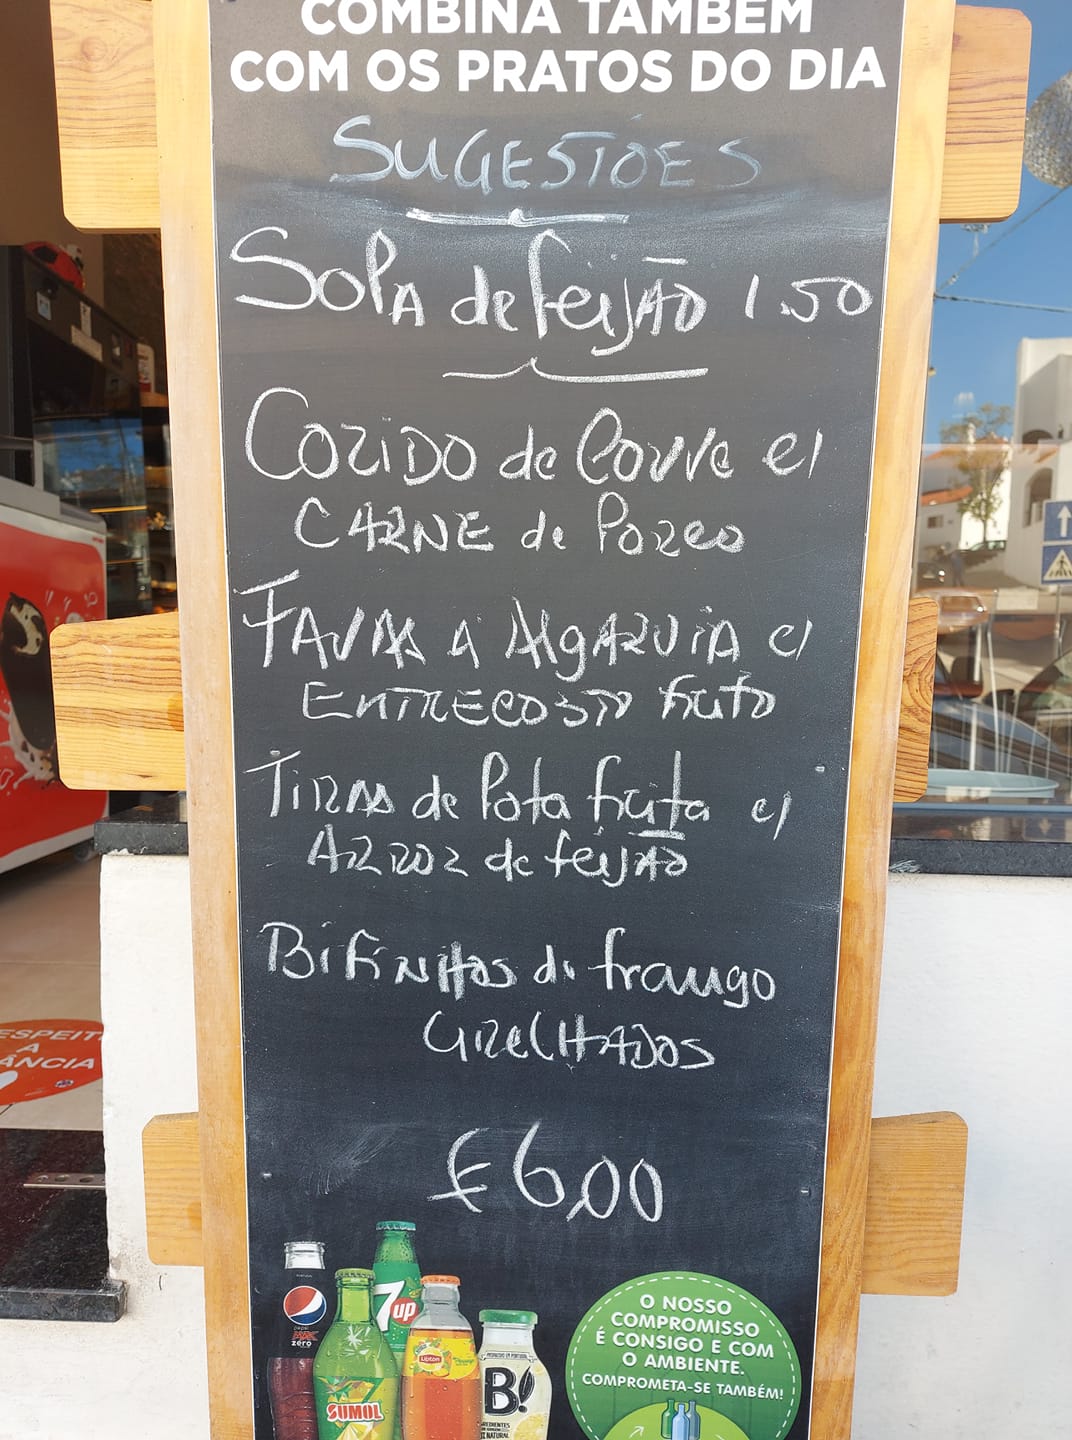 COMBINA TAMBÉM
COM OS PRATOS DO DIA
SUGESTÕES
SOPA de feijão 1.50
COZIDO de Couve c/
CARNE de Porco
FAVAS A ALGARVIA c/
ENTRECOSTO frito
TIRAS de Pota frita c/
ARROZ de feijão
BIFINHOS de frango
GRELHADOS
€6,00
ESPEIT
A
ÂNCIA
7up
pepsi
MAX
zero
Lipton
SUMOL
B!
O NOSSO
COMPROMISSO
É CONSIGO E COM
O AMBIENTE.
COMPROMETA-SE TAMBÉM!